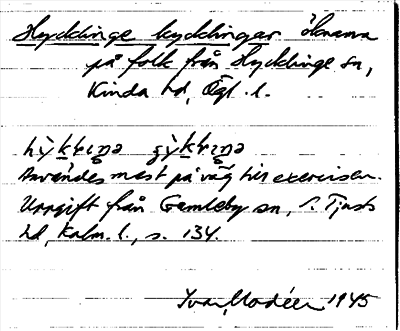 Hycklinge kycklingar öknamn
på folk från Hycklinge sn,
Kinda hd, Ögl. l.
Användes mest på väg till exercisen.
Uppgift från Gamleby sn, S. Tjusts
hd, Kalm. l., s. 134.
Ivar Modéer 1945